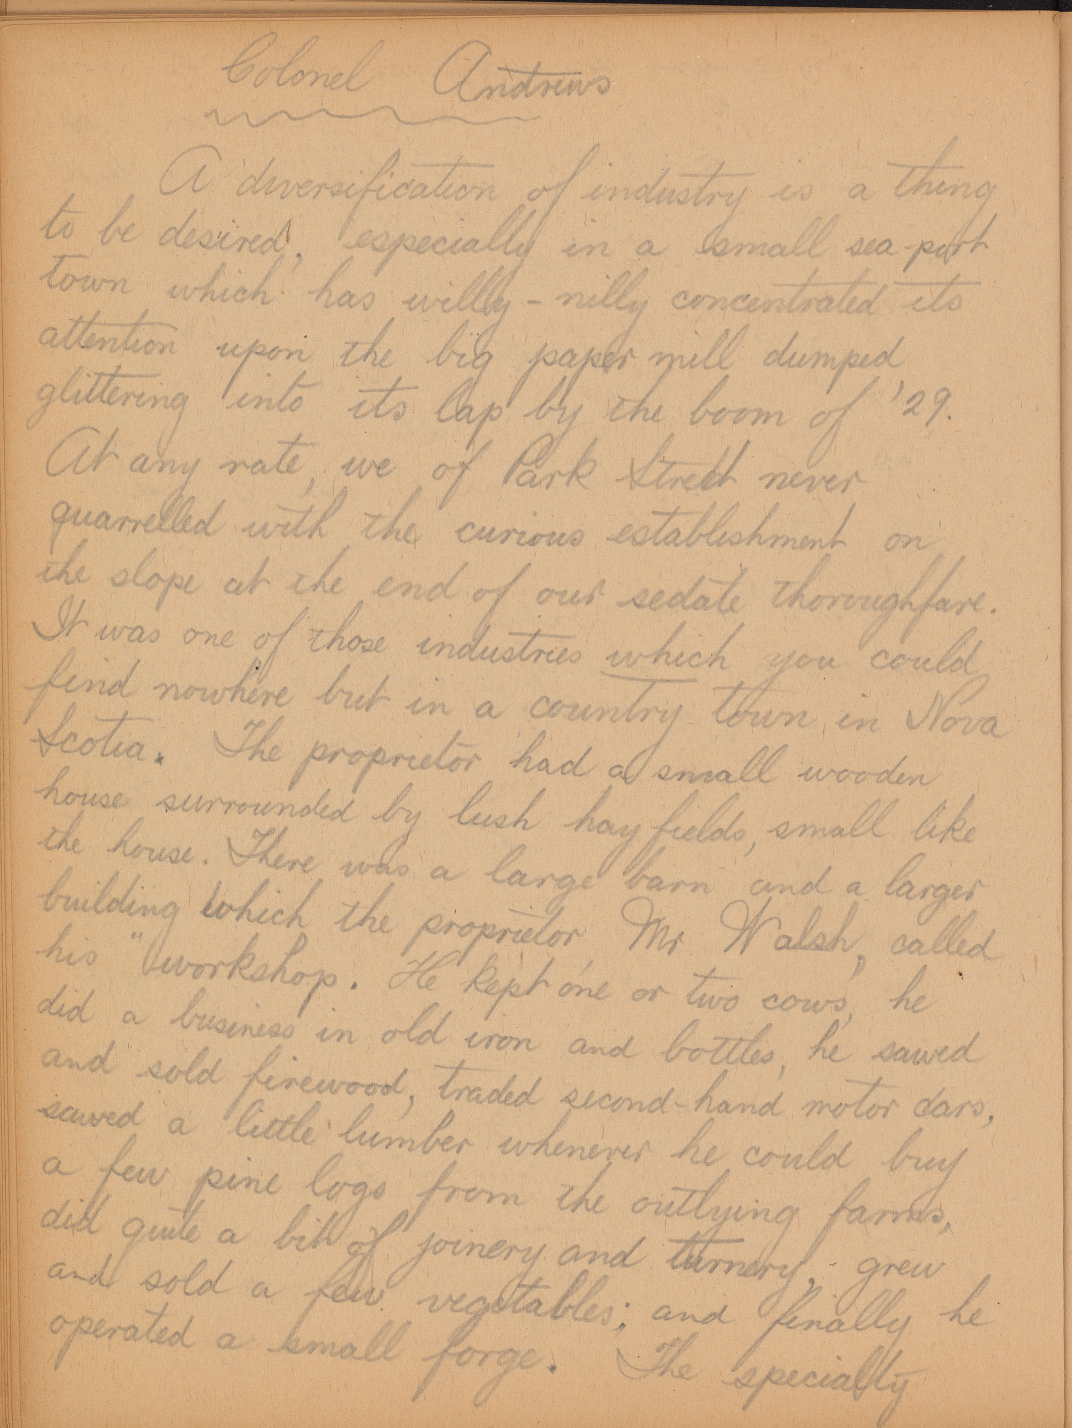 Colonel Andrews
A diversification of industry is a thing
to be desired, especially in a small sea-port
town which has willy-nilly concentrated its
attention upon the big paper mill dumped
glittering into its lap by the boom of '29.
At any rate, we of Park Street never
quarrelled with the curious establishment on
the slope at the end of our sedate thoroughfare.
It was one of those industries which you could
find nowhere but in a country town in Nova
Scotia. The proprietor had a small wooden
house surrounded by lush hay fields, small like
the house. There was a large barn and a larger
building which the proprietor, Mr Walsh, called
his "workshop. He kept one or two cows, he
did a business in old iron and bottles, he sawed
and sold firewood, traded second-hand motor cars,
sawed a little lumber whenever he could buy
a few pine logs from the outlying farms,
did quite a bit of joinery and turnery, grew
and sold a few vegetables; and finally he
operated a small forge. The specialty